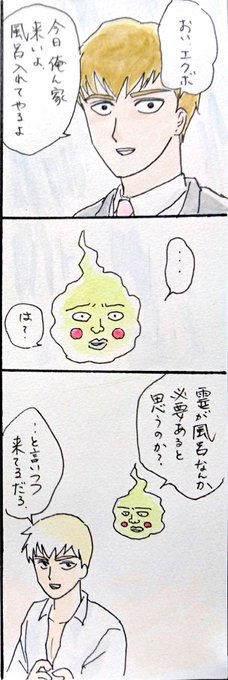 おい、エクボ
今日俺ん家
来いよ、
風呂入れてやるよ
・・・
は?
霊が風呂なんか
必要あると
思うのか?
…と言いつつ
来てるだろ。